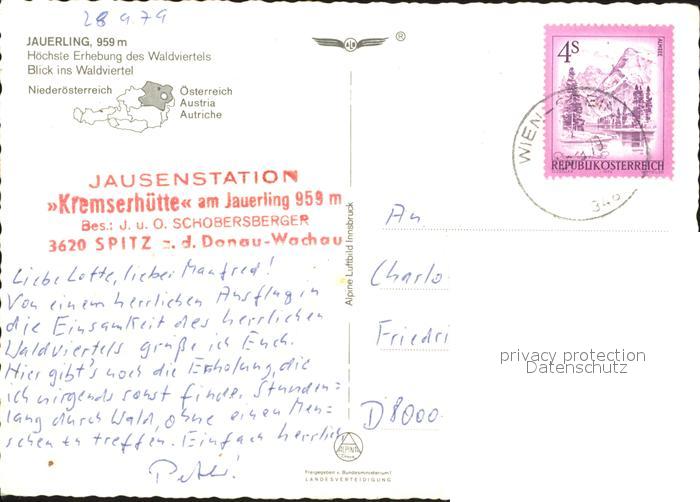 28.9.79
JAUERLING, 959 m
Höchste Erhebung des Waldviertels
Blick ins Waldviertel
Niederösterreich
Österreich
Austria
Autriche
®
4S
ALMSEE
REPUBLIK ÖSTERREICH
WIEN-
JAUSENSTATION
»Kremserhütte« am Jauerling 959 m
Bes.: J. u. O. SCHOBERSBERGER
3620 SPITZ a. d. Donau-Wachau
Liebe Lotte, lieber Manfred!
Von einem herrlichen Ausflug in
die Einsamkeit des herrlichen
Waldviertels grüße ich Euch.
Hier gibt's noch die Erholung, die
ich nirgends sonst finde. Stunden=
lang durch Wald, ohne einen Men=
schen zu treffen. Einfach herrlich
Peter!
Alpine Luftbild Innsbruck
An
Charlo
Friedri
D 8000
privacy protection
Datenschutz
ALPINE
Freigegeben v. Bundesministerium f.
LANDESVERTEIDIGUNG